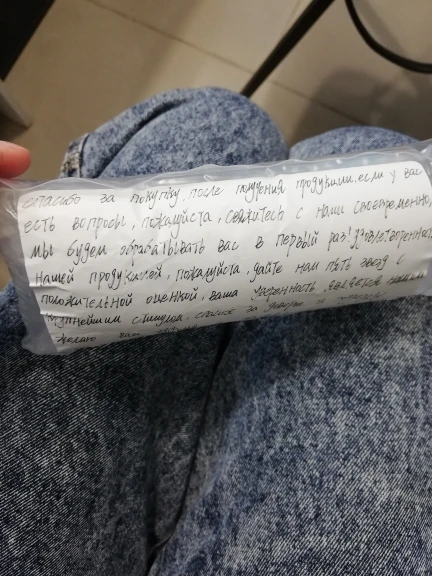 спасибо за покупку, после получения продукции, если у вас
есть вопросы, пожалуйста, свяжитесь с нами своевременно,
мы будем обрабатывать вас в первый раз! удовлетворенность
нашей продукцией, пожалуйста, дайте нам пять звезд с
положительной оценкой, ваша уверенность является нашим
крупнейшим стимулом, спасибо за доверие и
желаю вам